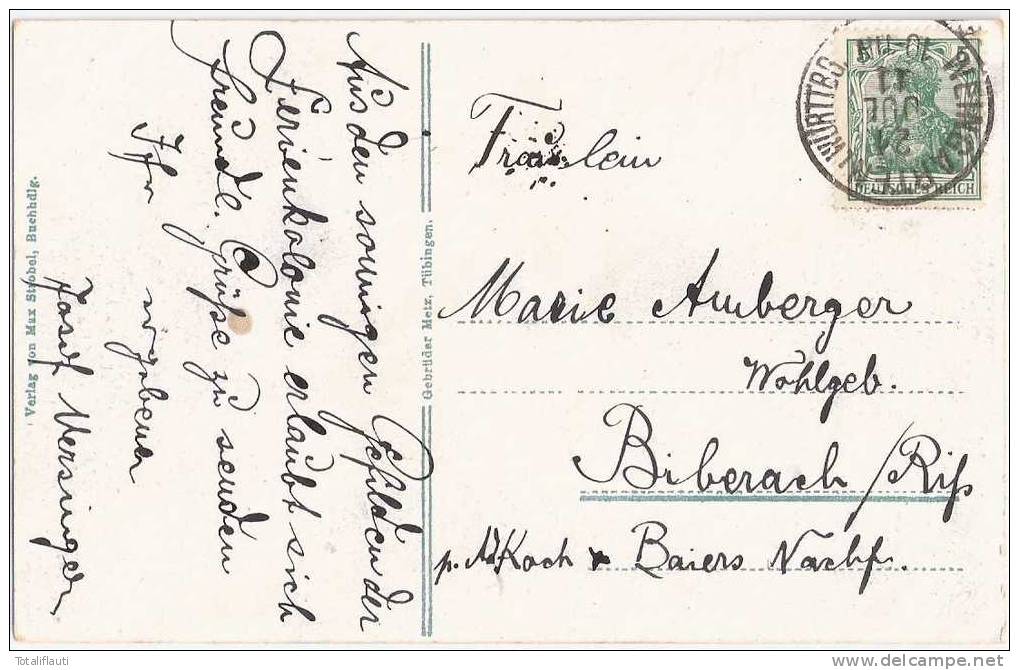 Aus den sonnigen Gefilden der
Ferienkolonie erlaubt sich
freundl. Grüße zu senden
Ihr
ergebener
Josef Mersinger
Verlag von Max Strobel, Buchhdlg.
Gebrüder Metz, Tübingen.
WEINGARTEN (WÜRTTBG.)
24
JUL
11
DEUTSCHES REICH
Fräulein
Marie Amberger
Wohlgeb.
Biberach /Riß
p. Ad. Koch & Baiers Nachf.
Totaliflauti
delcampe.net